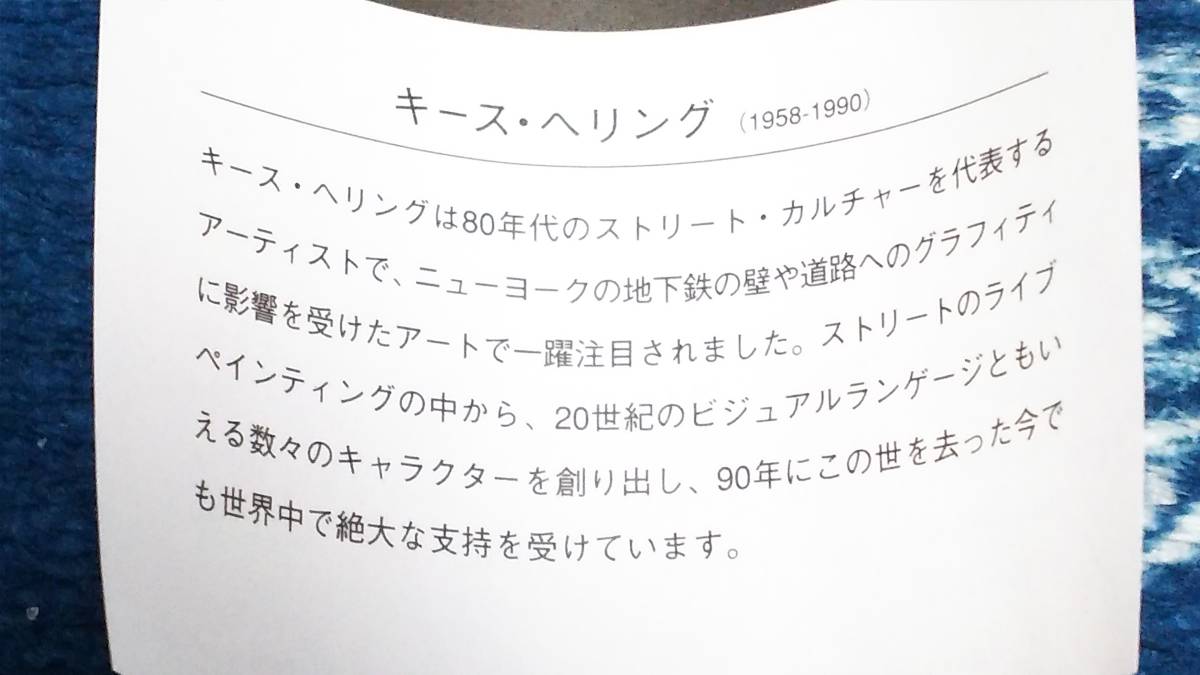 キース・ヘリング (1958-1990)
キース・ヘリングは80年代のストリート・カルチャーを代表する
アーティストで、ニューヨークの地下鉄の壁や道路へのグラフィティ
に影響を受けたアートで一躍注目されました。ストリートのライブ
ペインティングの中から、20世紀のビジュアルランゲージともい
える数々のキャラクターを創り出し、90年にこの世を去った今で
も世界中で絶大な支持を受けています。